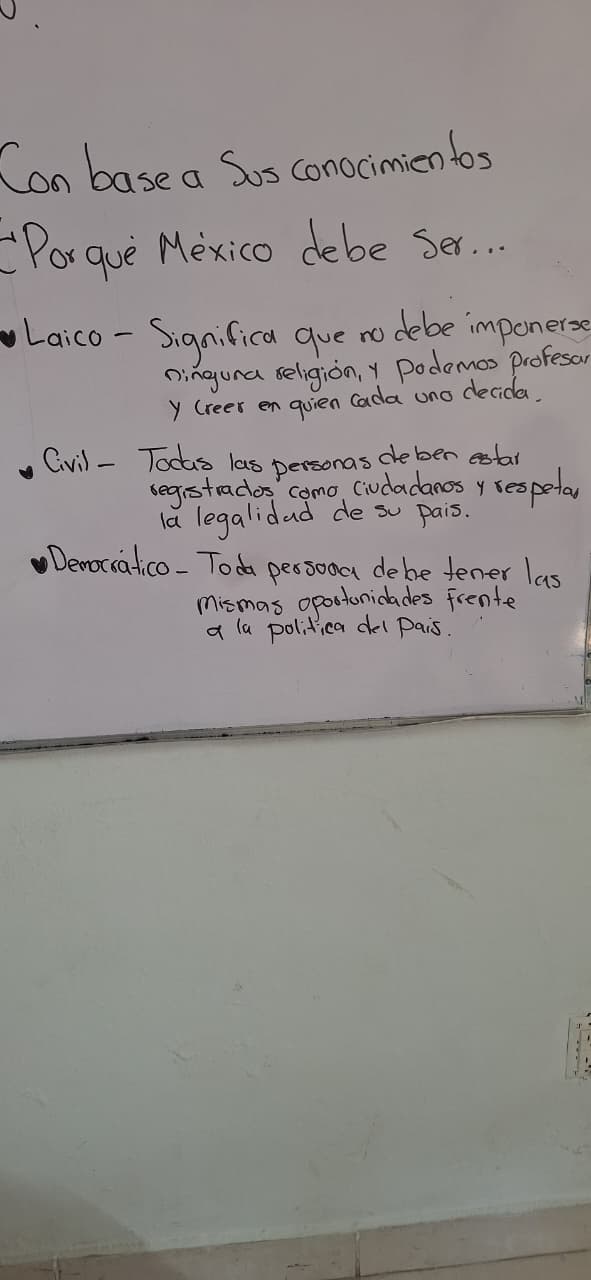 Con base a Sus conocimientos
¿Por qué México debe ser...
Laico - Significa que no debe imponerse
ninguna religión, y podemos profesar
y creer en quien cada uno decida.
Civil - Todas las personas deben estar
registrados como ciudadanos y respetar
la legalidad de su pais.
Democrático - Toda persona debe tener las
mismas oportunidades frente
a la política del País.